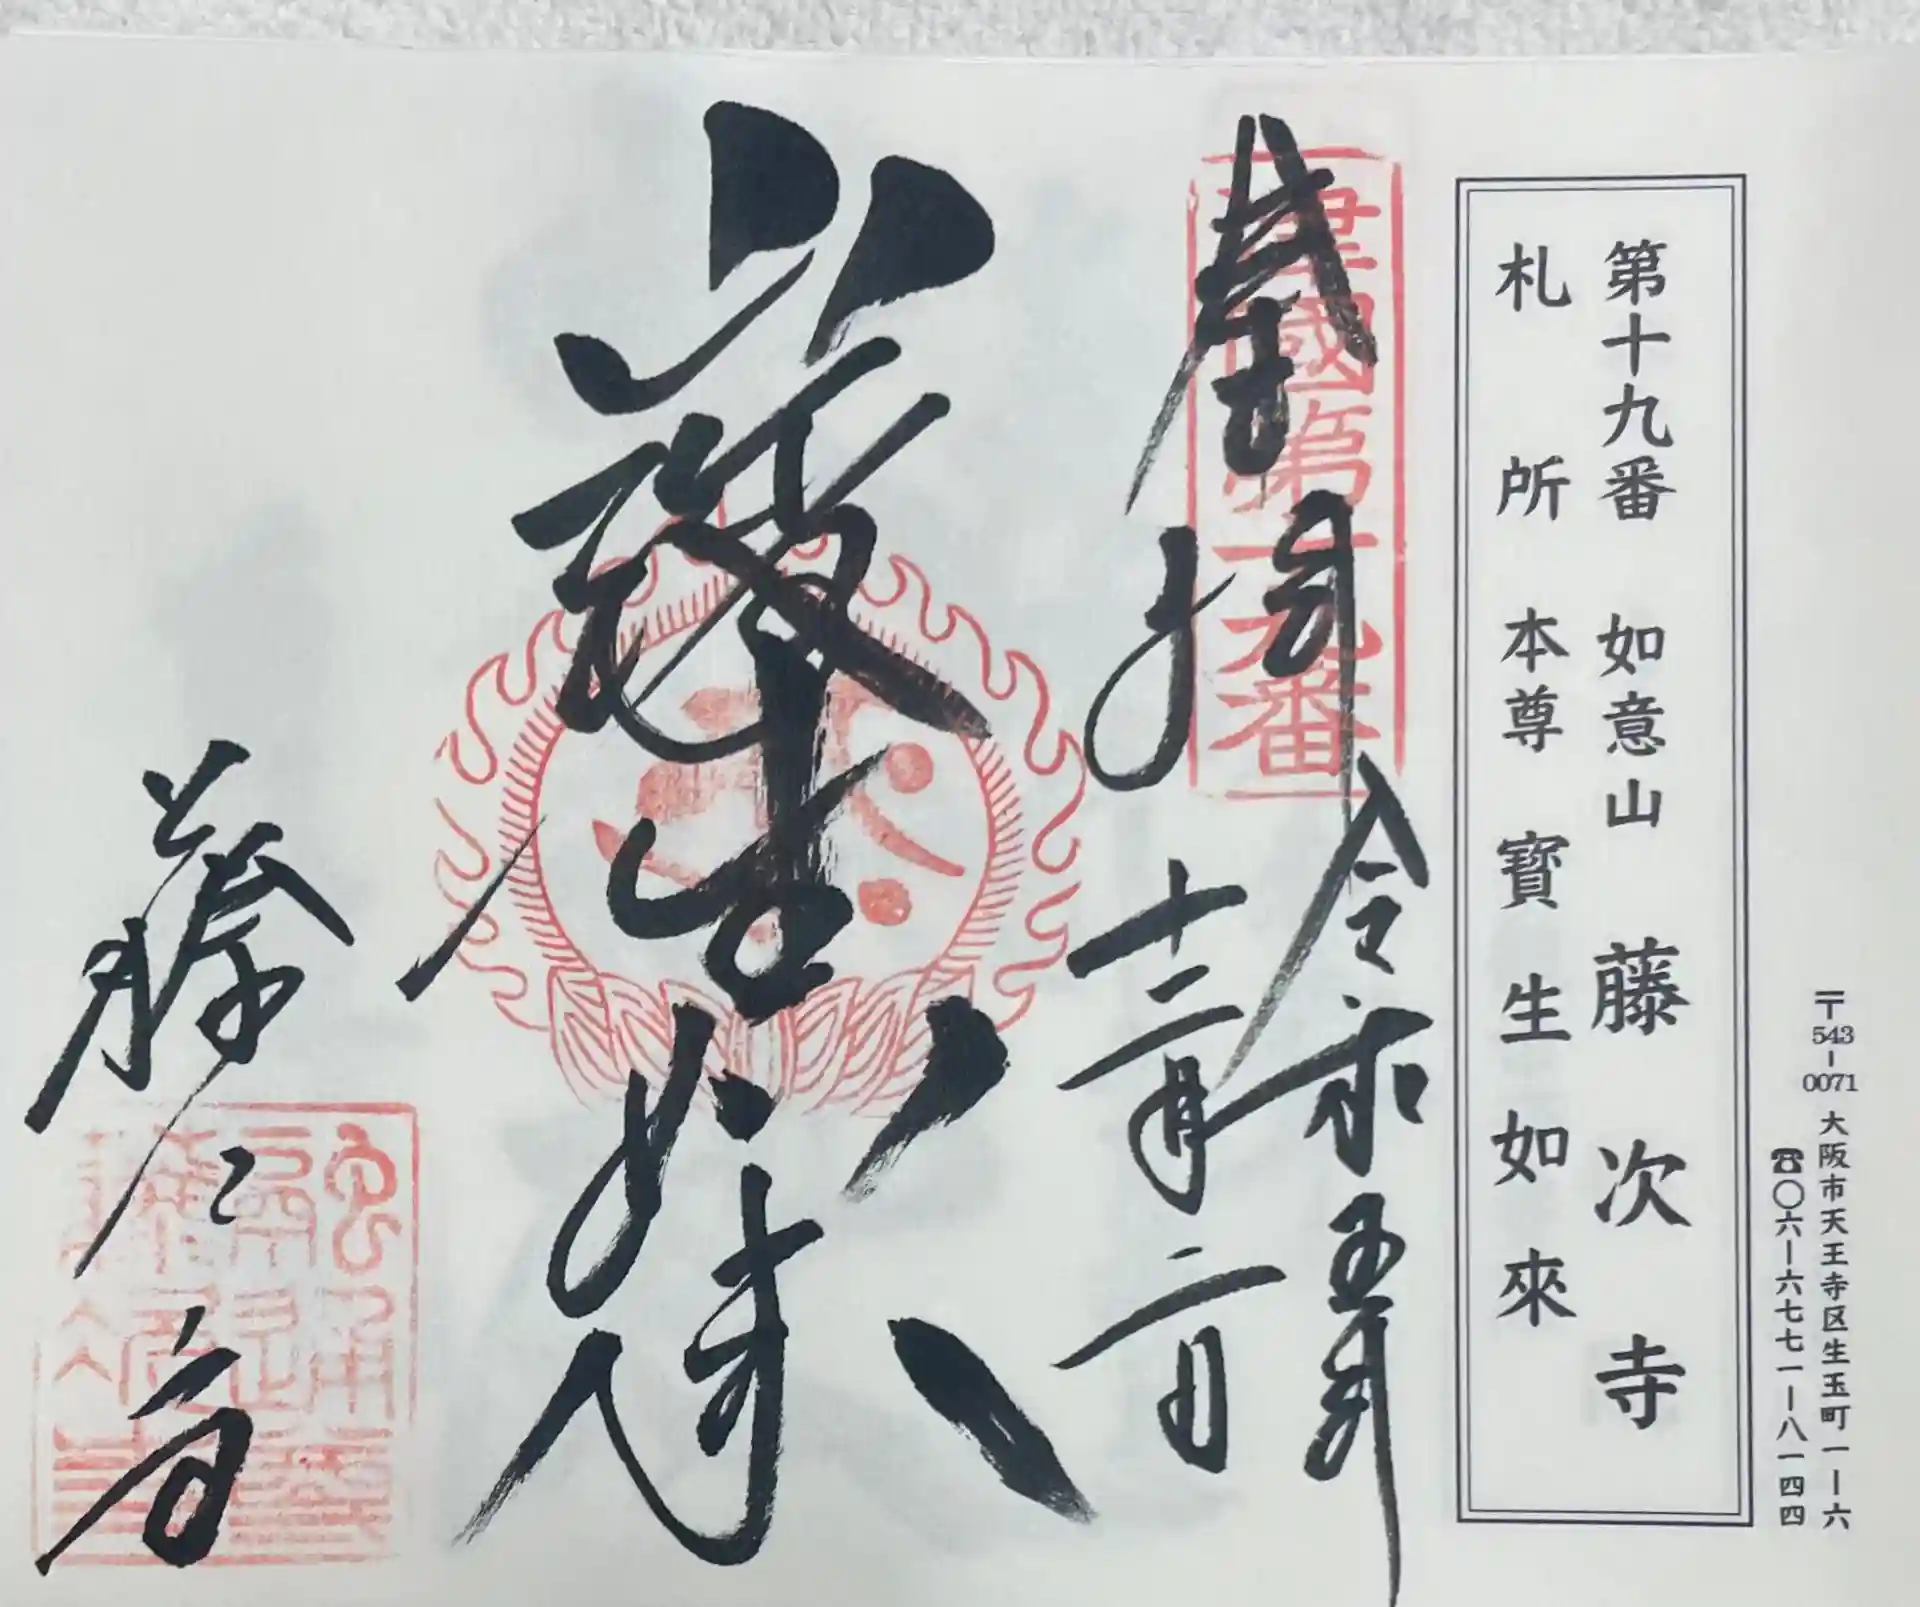 〒543-0071 大阪市天王寺区生玉町一ー六
☎〇六ー六七七一ー八一四四
第十九番 如意山 藤次寺
札所本尊 寶生如來
奉拝
國第十九番
令和五年
十二月二日
寶生如来
藤次寺